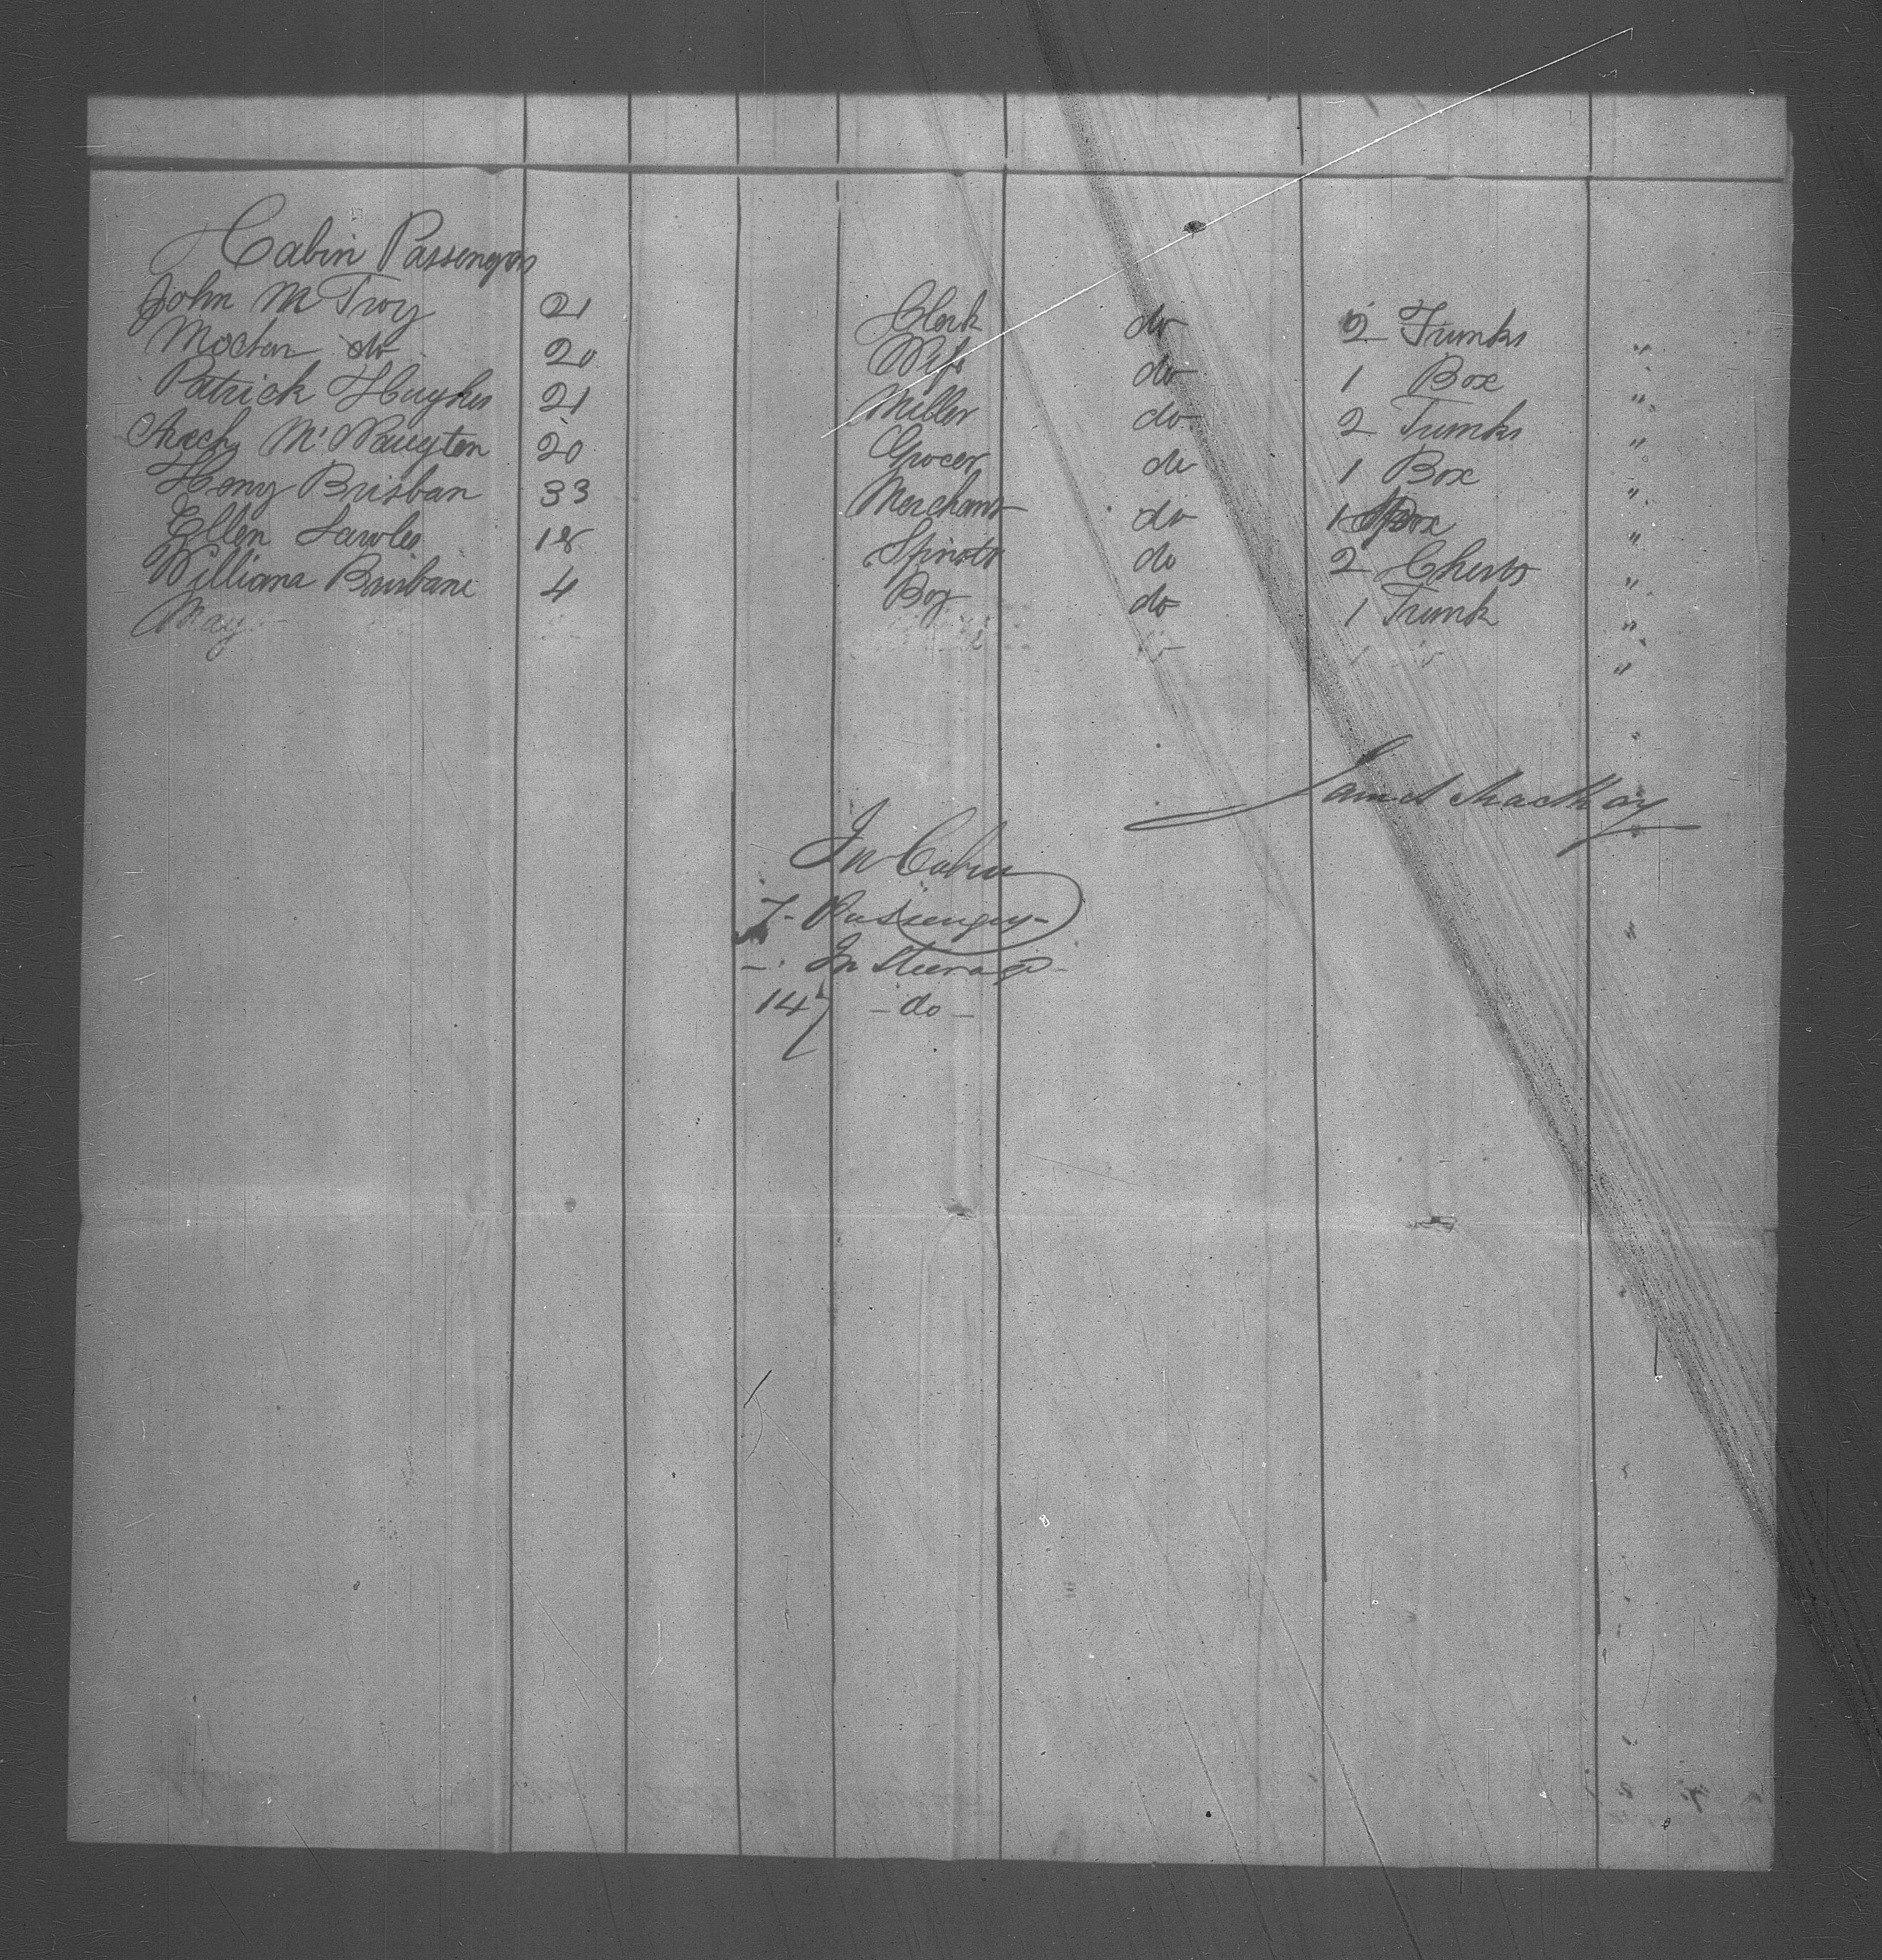 Cabin Passengers
John Mc Troy 21 Clerk do 2 Trunks "
do 20 Wife do 1 Box "
Patrick Hughes 21 Miller do 2 Trunks "
Arch McNaugten 20 Grocer do 1 Box "
Henry Brisban 33 Merchant do 1 Box "
Ellen Lawles 18 Spinstr do 2 Chests "
William Brisbane 4 Boy do 1 Trunk "
May "
In Cabin
7 - Passengers -
- In Steerage -
147 - do -